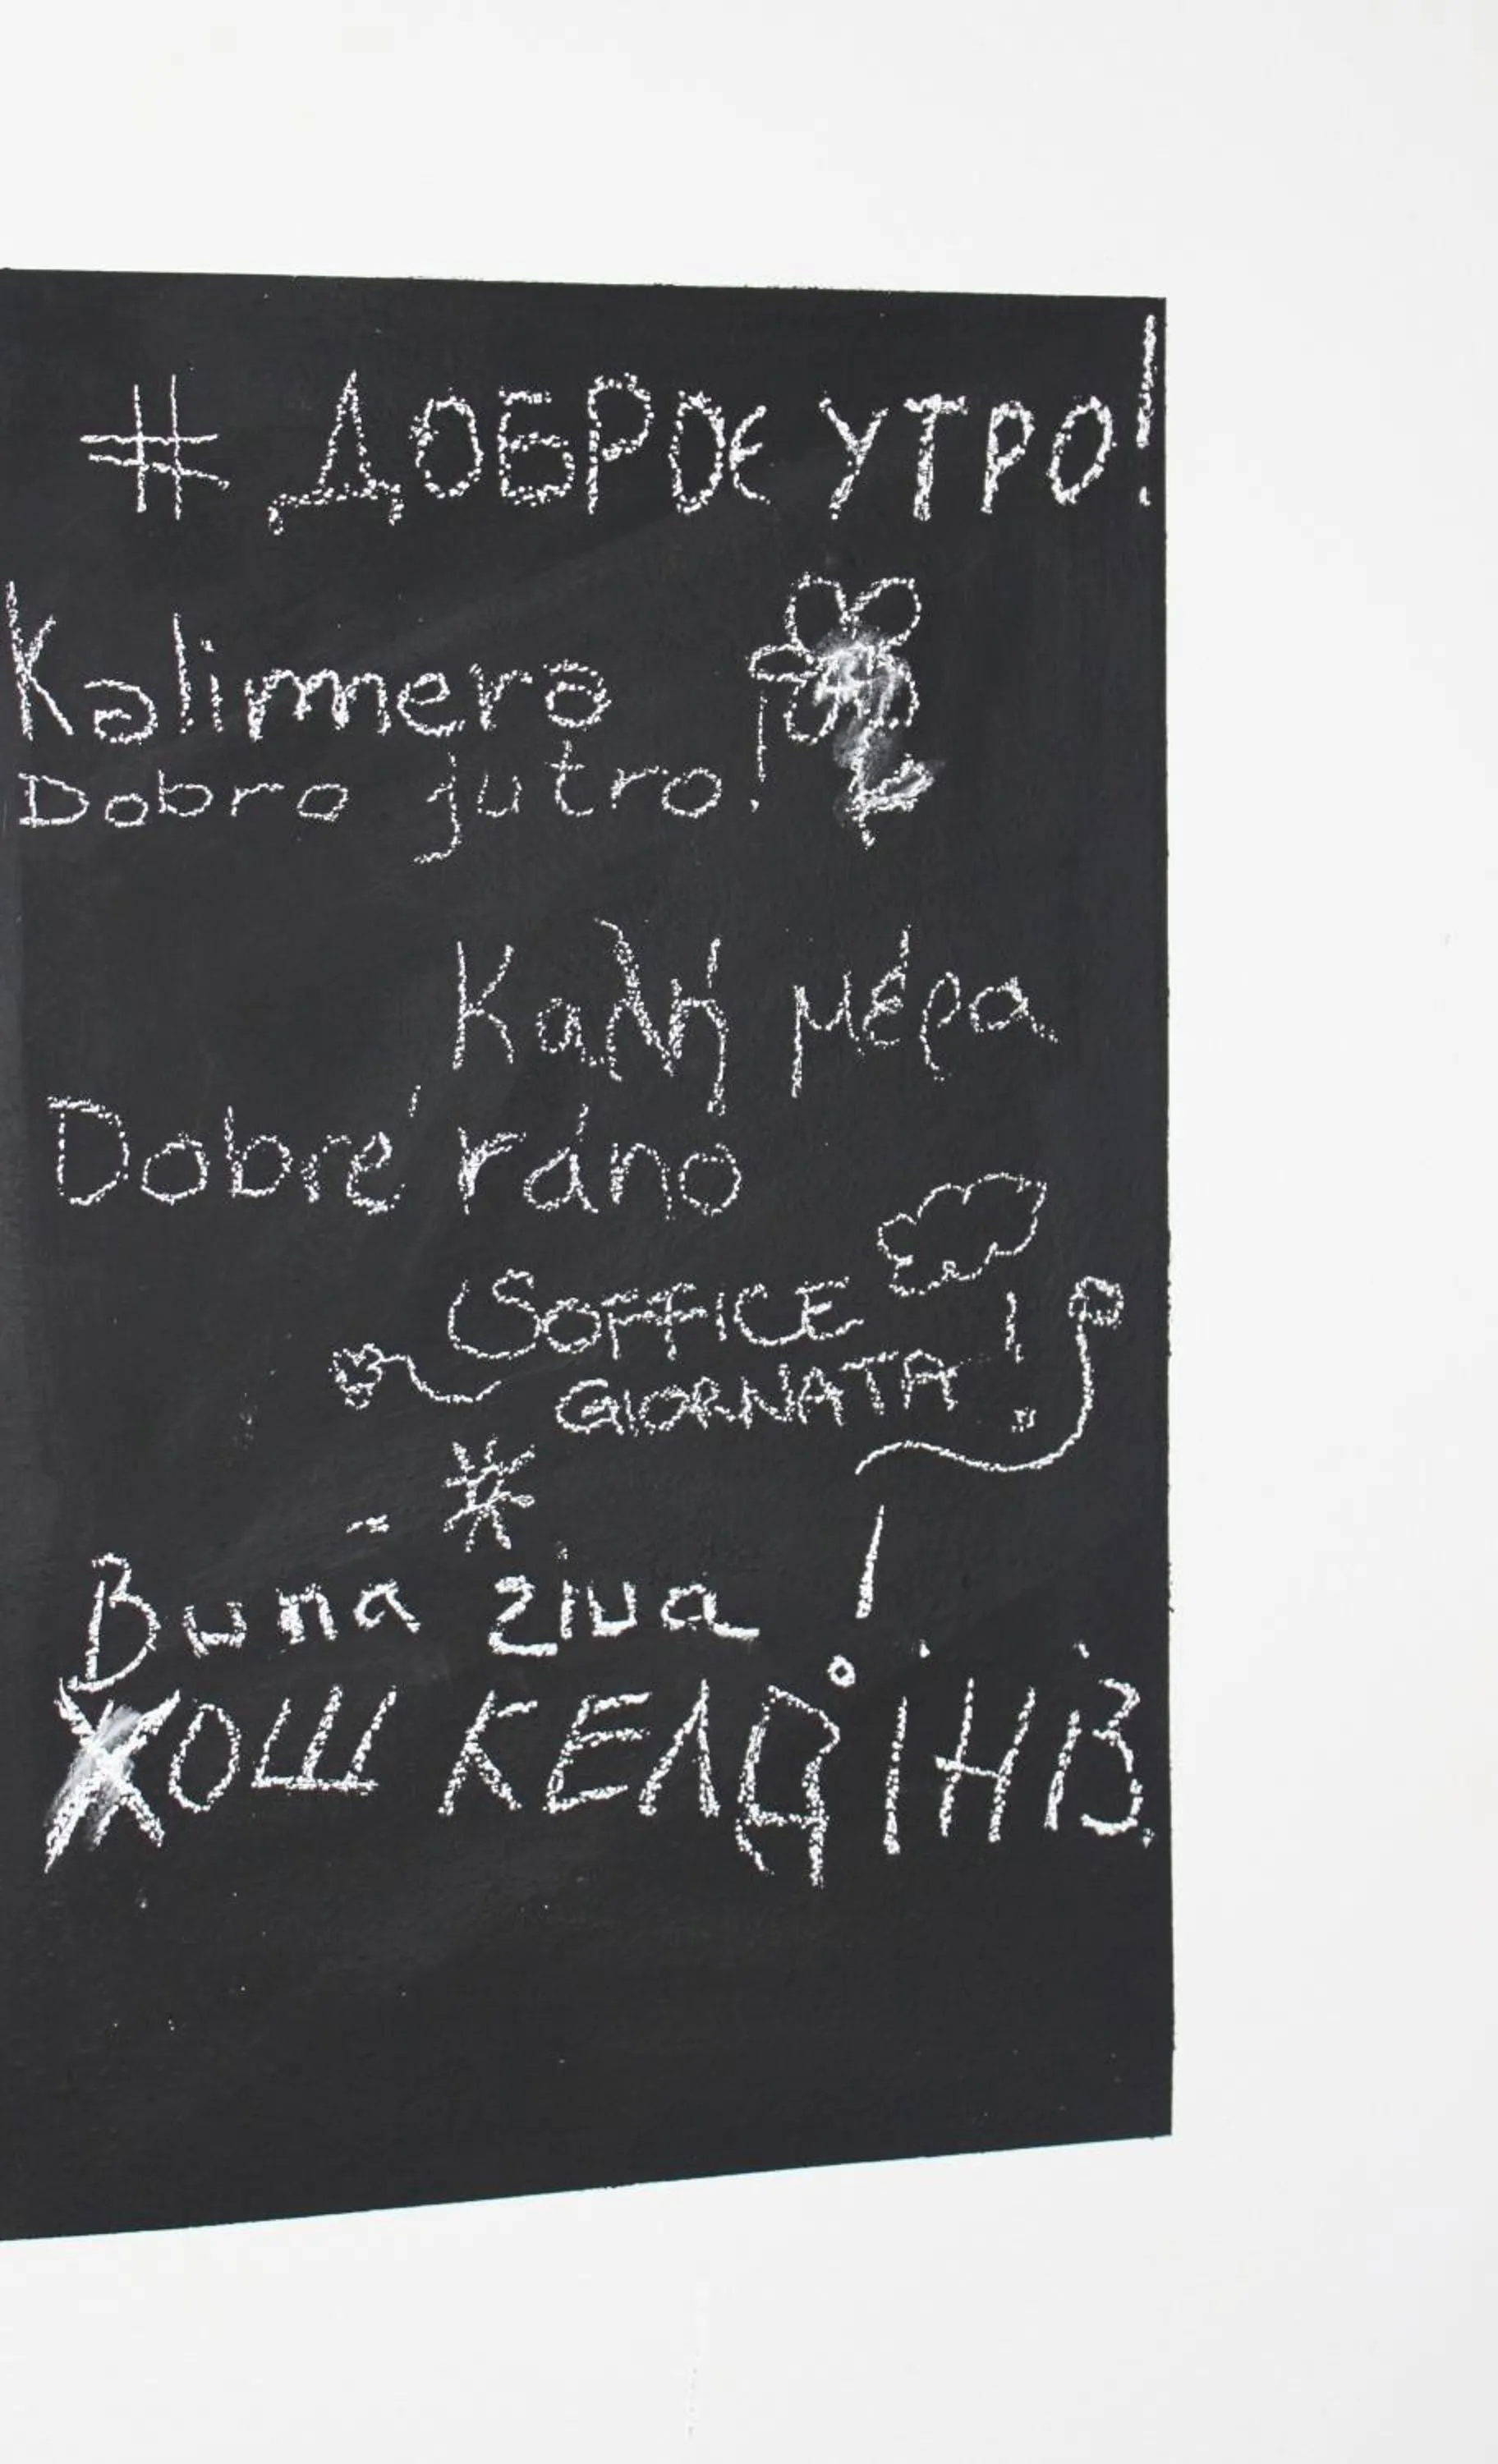 # ДОБРОЕ УТРО!
Kalimera
Dobro jutro!
Καλή μέρα
Dobré ráno
SOFFICE
GIORNATA!
Bună ziua!
ХОШ